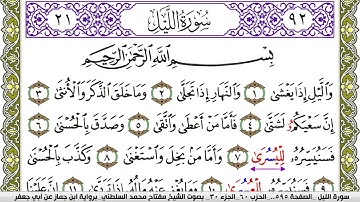 ٩٢ سُورَةُ اللَّيْلِ ٢١
بِسْمِ اللَّهِ الرَّحْمَٰنِ الرَّحِيمِ
وَالَّيْلِ إِذَا يَغْشَىٰ ١ وَالنَّهَارِ إِذَا تَجَلَّىٰ ٢ وَمَا خَلَقَ الذَّكَرَ وَالْأُنثَىٰ ٣
إِنَّ سَعْيَكُمُۥ لَشَتَّىٰ ٤ فَأَمَّا مَنْ أَعْطَىٰ وَاتَّقَىٰ ٥ وَصَدَّقَ بِالْحُسْنَىٰ ٦
فَسَنُيَسِّرُهُۥ لِلْيُسُرَىٰ ٧ وَأَمَّا مَنۢ بَخِلَ وَاسْتَغْنَىٰ ٨ وَكَذَّبَ بِالْحُسْنَىٰ
سورة الليل الصفحة ٥٩٥.. الحزب ٦٠ الجزء ٣٠.. بصوت الشيخ مفتاح محمد السلطني برواية ابن جماز عن أبي جعفر